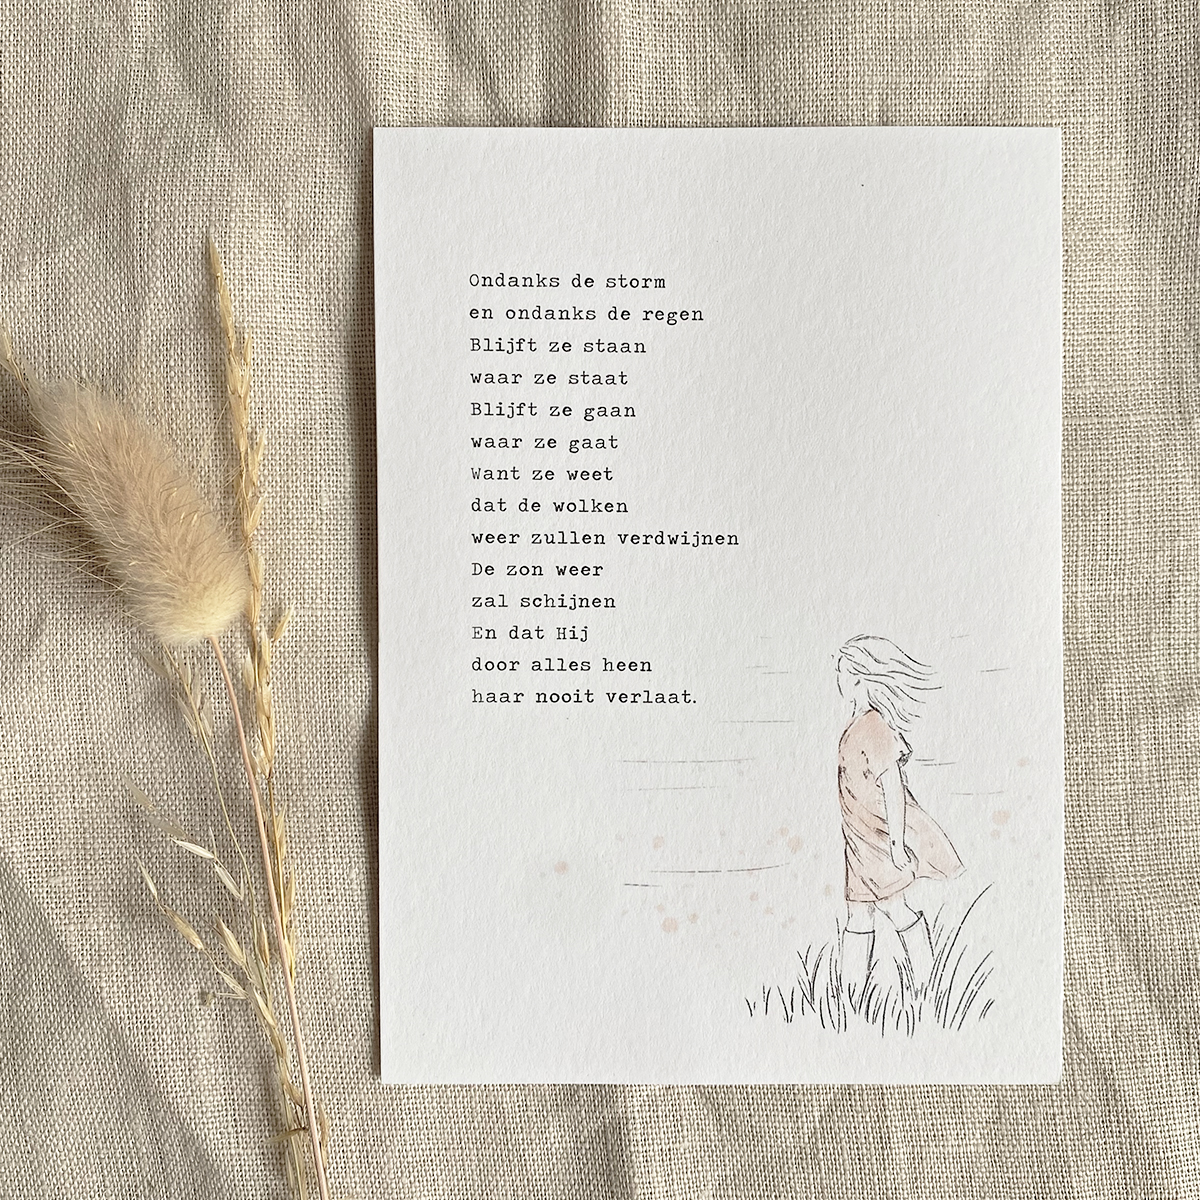 Ondanks de storm
en ondanks de regen
Blijft ze staan
waar ze staat
Blijft ze gaan
waar ze gaat
Want ze weet
dat de wolken
weer zullen verdwijnen
De zon weer
zal schijnen
En dat Hij
door alles heen
haar nooit verlaat.